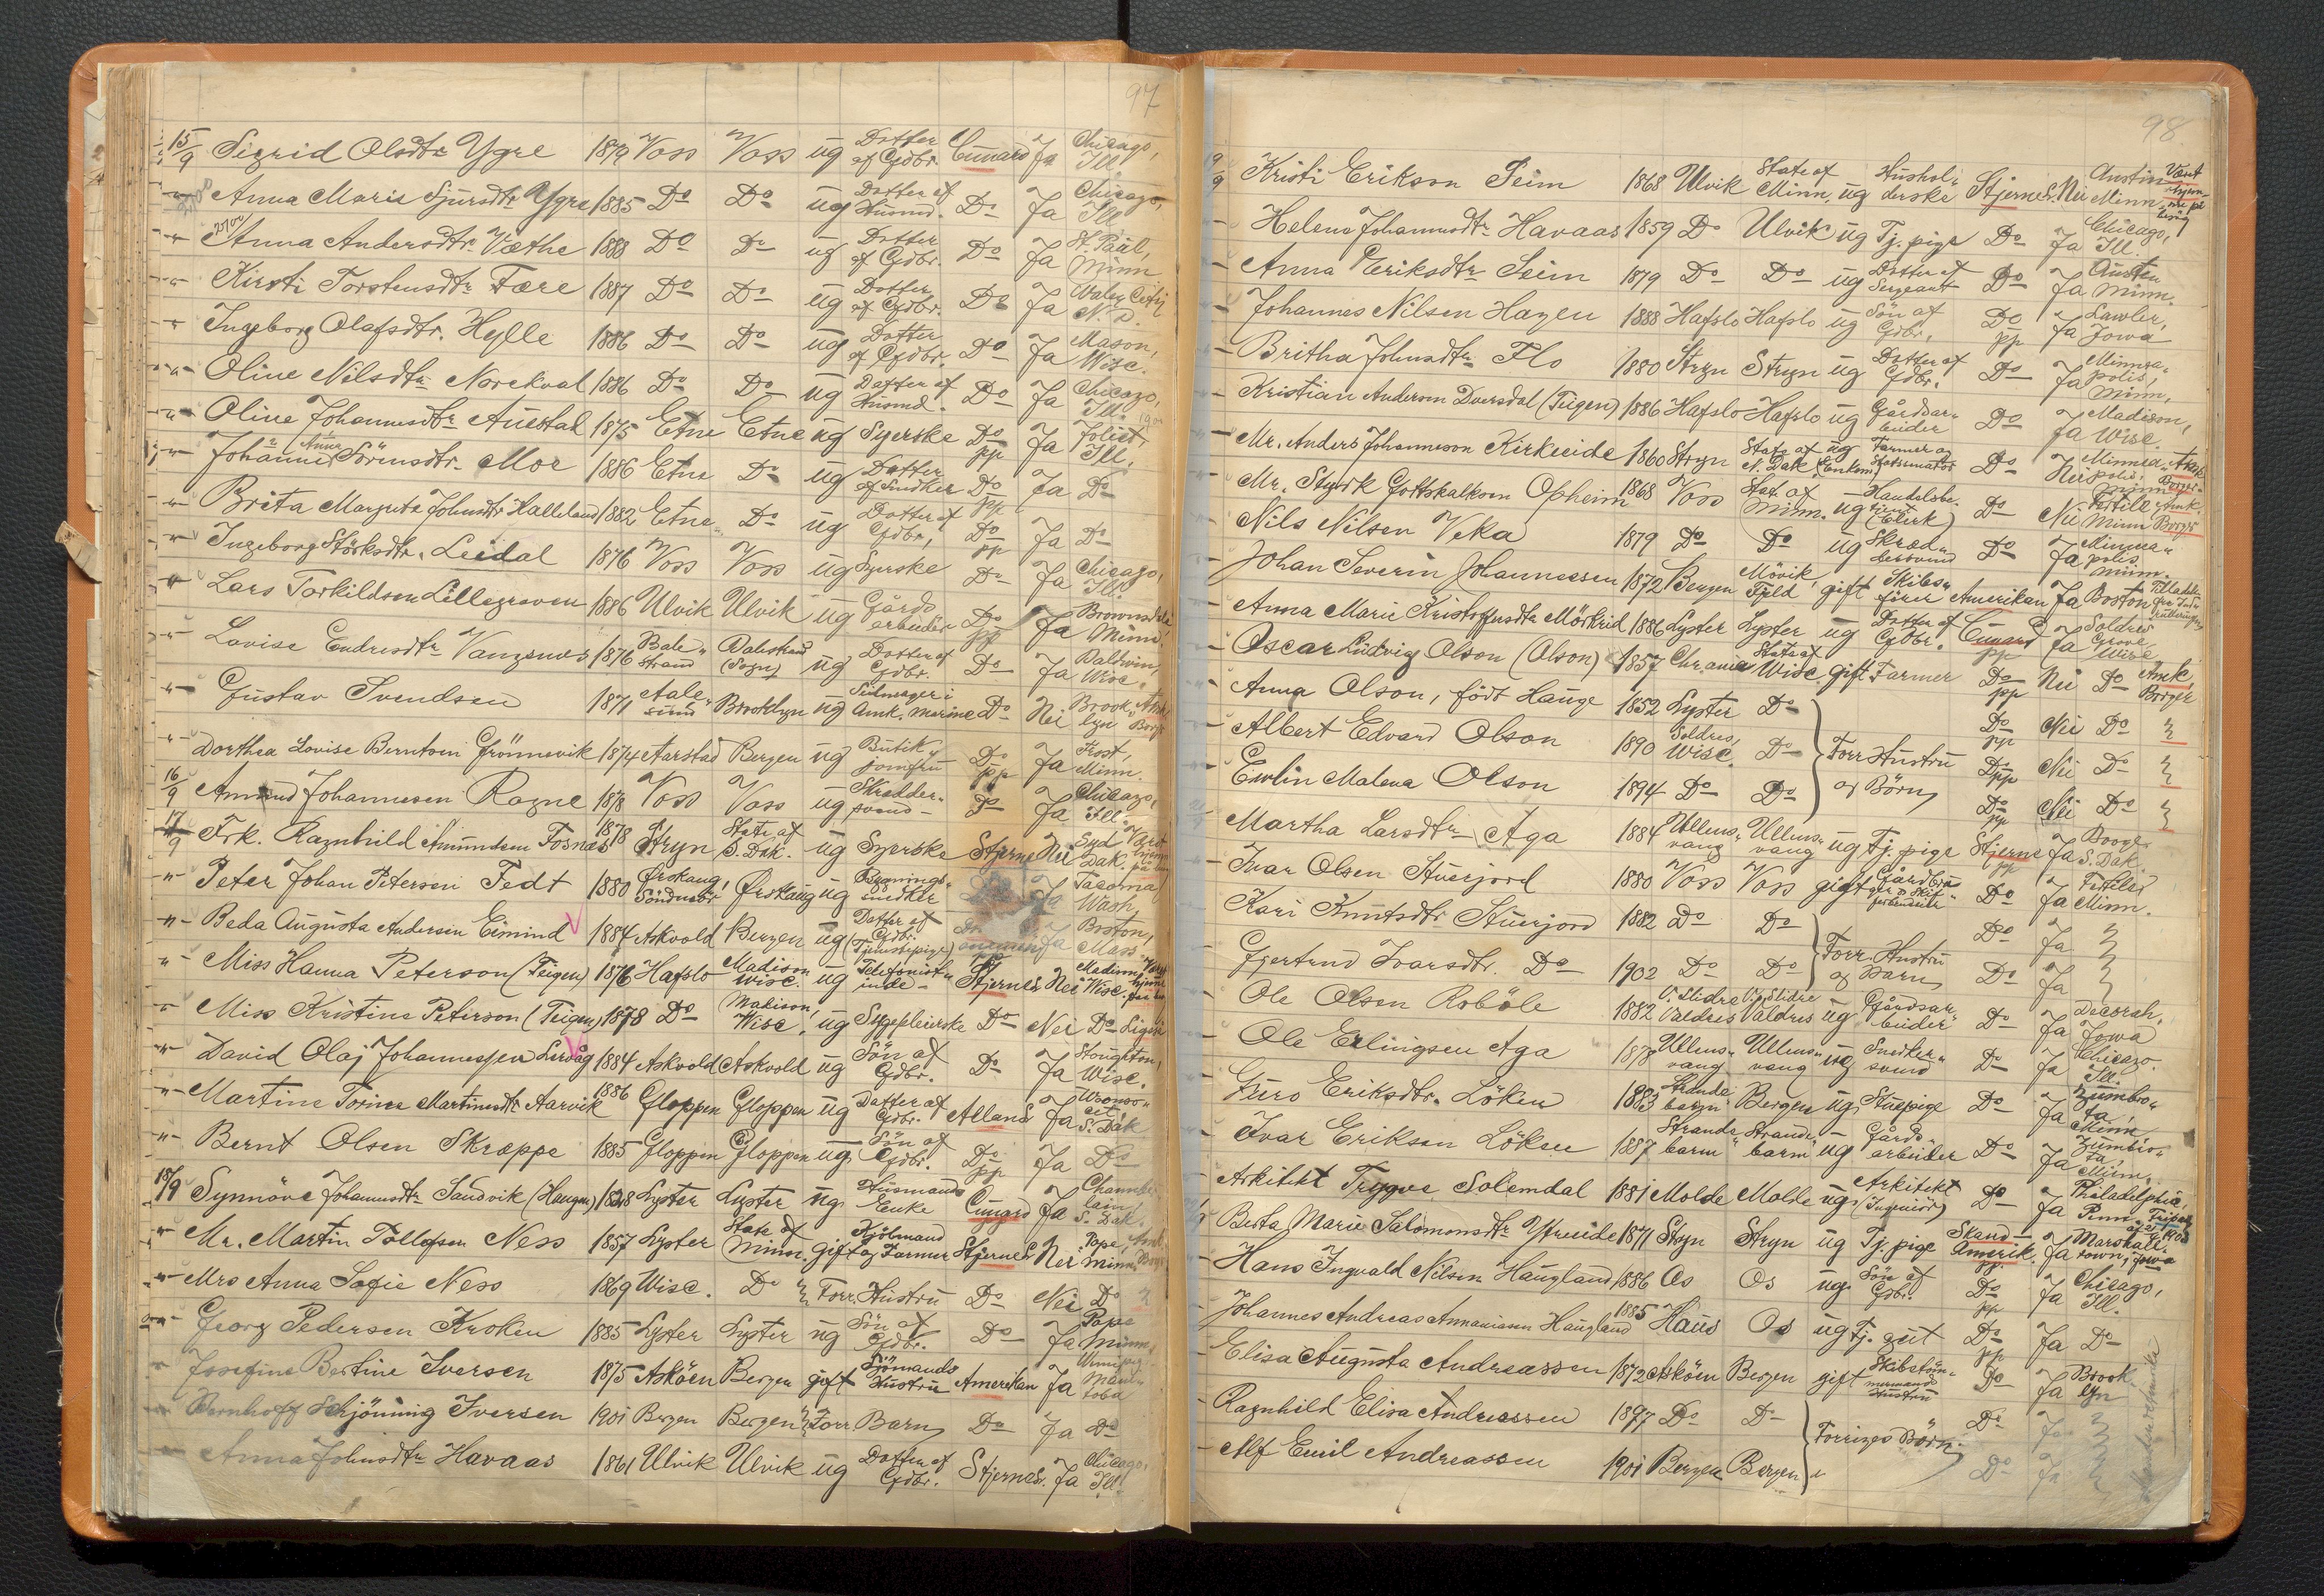 97
15/9 Sigrid Olsdtr Ygre 1879 Voss Voss ug Datter af Gdbr. Cunard Ja Chicago, Ill.
Anna Maria Sjursdtr Ygre 1885 Do Do ug Datter af Husmd. Do Ja Chicago, Ill.
Anna Andersdtr. Væthe 1888 Do Do ug Datter af Gdbr. Do Ja St. Paul, Minn
Kirsti Torstensdtr Fære 1887 Do Do ug Datter af Gdbr. Do Ja Valey City N. D.
Ingeborg Olafsdtr. Hylle 1886 Do Do ug Datter af Gdbr. Do Ja Mason, Wisc.
Oline Nilsdtr Norekval 1886 Do Do ug Datter af Husmd. Do Ja Chicago, Ill.
Oline Johannesdtr Austad 1875 Etne Etne ug Syerske Do pp Ja Joliet, Ill.
Johanne Anna Sörensdtr. Moe 1886 Etne Do ug Datter af Snedker Do pp Ja Do
Brita Margreta Johnsdtr Halleland 1882 Etne Do ug Datter af Gdbr, Do pp Ja Do
Ingeborg Störksdtr. Leidal 1876 Voss Voss ug Syerske Do Ja Chicago, Ill.
Lars Torkildsen Lillegraven 1886 Ulvik Ulvik ug Gårdsarbeider Do pp Ja Brownsdale Minn.
Lovise Endresdtr Vangsnes 1876 Balestrand Balestrand (Sogn) ug Datter af Gdbr. Do Ja Baldwin, Wisc.
Gustav Svendsen 1871 Aalesund Brooklyn ug Seilmager i Amk. Marine Do Nei Brooklyn Amk. Borger
Dorthea Lovise Berntsen Grönnevik 1874 Aarstad Bergen ug Butikjomfru Do pp Ja Frost, Minn.
16/9 Amund Johannesen Rogne 1878 Voss Voss ug Skræddersvend Do Ja Chicago, Ill.
17/9 Frk. Ragnhild Amundsen Fosnæs 1878 Stryn State of S. Dak. ug Syerske Stjerne Nei Syd Dak. Været hjemme på besög
Peter Johan Petersen Fedt 1880 Ørskaug, Söndmör Ørskaug ug Bygningssnedker Ja Tacoma Wash.
Beda Augusta Andersen Eimind 1884 Askvold Bergen ug Datter af Gdbr. (Tjenestepige) Ja Boston, Mass
Miss Hanna Peterson (Teigen) 1876 Hafslo Madison Wisc. ug Telefonistinde Stjernes Nei Madison, Wisc.
Miss Kristine Peterson (Teigen) 1878 Do Madison, Wisc. ug Sygepleierske Do Nei Do Ligeså
David Olaj Johannessen Lervåg 1884 Askvold Askvold ug Sön af Gdbr. Do Ja Stoughton, Wisc.
Martine Tomine Martinusdtr Aarvik 1886 Gloppen Gloppen ug Datter af Gdbr. Allans Ja S. Dak
Bernt Olsen Skræppe 1885 Gloppen Gloppen ug Sön af Gdbr. Do pp Ja Do
18/9 Synnöve Johannesdtr Sandvik (Haugen) 1828 Lyster Lyster ug Husmands Enke Cunard Ja Chamberlain S. Dak.
Mr. Martin Tollefsen Ness 1857 Lyster State of Minn. gift Kjöbmand og Farmer Stjernes Nei Pope, Minn. Amk. Borger
Mrs Anna Sofie Ness 1869 Wisc. Do Forr. Hustru Do Nei Do
Georg Pedersen Kroken 1885 Lyster Lyster ug Sön af Gdbr. Do Ja Pope Minn.
Josefine Bertine Iversen 1875 Asköen Bergen gift Sjömands Hustru Amerikan Ja Winnipeg Manitoba
Bernhoff Schjönning Iversen 1901 Bergen Bergen Forr Barn Do Ja Do
Anna Johnsdtr Havaas 1861 Ulvik Ulvik ug Datter af Gdbr. Stjernes. Ja Chicago, Ill.
98
19/9 Kristi Erikson Seim 1868 Ulvik State of Minn. ug Husholderske Stjernes. Nei Austin Minn. Været hjemme på besög
Helena Johannesdtr Havaas 1859 Do Ulvik ug Tj. pige Do Ja Chicago, Ill.
Anna Eriksdtr Seim 1879 Do Do ug Datter af Sergeant Do Ja Austen Minn.
Johannes Nilsen Hagen 1888 Hafslo Hafslo ug Sön af Gdbr. Do pp Ja Lawler, Jowa
Britha Johnsdtr Flo 1880 Stryn Stryn ug Datter af Gdbr. Do Ja Minneapolis, Minn,
Kristian Andersen Dversdal (Teigen) 1886 Hafslo Hafslo ug Gårdsarbeider Do Ja Madison, Wisc.
Mr. Anders Johanneson Kirkeeide 1860 Stryn State of N. Dak ug (Enkem.) Farmer og Statssenator Do Nei Minneapolis. Minn Amk. Borger
Mr. Styrk Gottskalksen Opheim 1868 Voss Stat. of Minn. ug Handelsbetjent (Clerk) Do Nei Fertill Minn Amk. Borger
Nils Nilsen Veka 1879 Do Do ug Skræddersvend Do Ja Minneapolis. Minn.
Johan Severin Johannessen 1872 Bergen Mövik, Fjeld gift Skibsförer Amerikan Ja Boston
Anna Marie Kristoffersdtr Mörkrid 1886 Lyster Lyster ug Datter af Gdbr. Cunard pp Ja Soldies Grove Wisc
Oscar Ludvig Olson (Olson) 1857 Chr.ania State of Wisc. gift Farmer Do pp Nei Do Amk. Borger
Anna Olson, födt Hauge 1852 Lyster Do Do pp Nei Do
Albert Edvard Olson 1890 Soldies, Wisc. Do Forr Hustru Do pp Nei Do
Ewlin Malena Olson 1894 Do Do og Börn Do pp Nei Do
Martha Larsdtr Aga 1884 Ullensvang Ullensvang ug Tj. pige Stjerne pp Ja S. Dak.
Ivar Olsen Stuerjord 1880 Voss Voss gift Do Ja Fertiled Minn.
Kari Knutsdtr Stuerjord 1882 Do Do Forr. Hustru Do Ja
Gjertrud Ivarsdtr. Do 1902 Do Do og Barn Do Ja
Ole Olsen Roböle 1882 V. Slidre Valdres V. Slidre Valdres ug Gårdsarbeider Do Ja Decorah, Jowa
Ole Erlingsen Aga 1878 Ullensvang Ullensvang ug Snedkersvend Do Ja Chicago. Ill.
Guro Eriksdtr. Löken 1883 Strandebarm Bergen ug Stuepige Do Ja Zumbrota, Minn
Ivar Eriksen Löken 1887 Strandebarm Strandebarm ug Gårdsarbeider Do Ja Zumbrota, Minn.
Arkitekt Trygve Solemdal 1881 Molde Molde ug Arkitekt (Ingeniör) Do Ja Philadelphia, Penn.
Berta Marie Salomonsdtr Ytreeide 1871 Stryn Stryn ug Tj. pige Skand-Amerik. pp Ja Marshalltown, Jowa
Hans Ingvald Nilsen Haugland 1886 Os Os ug Sön af Gdbr. Do pp Ja Chicago, Ill.
Johannes Andreas Annaniassen Haugland 1885 Haus Os ug Tj. gut Do pp Ja Do
Elisa Augusta Andreassen 1872 Asköen Bergen gift Skibstömmermands Hustru Do Ja Brooklyn
Ragnhild Elisa Andreassen 1897 Do Do Forriges Börn Do Ja
Alf Emil Andreassen 1901 Bergen Bergen Do Ja